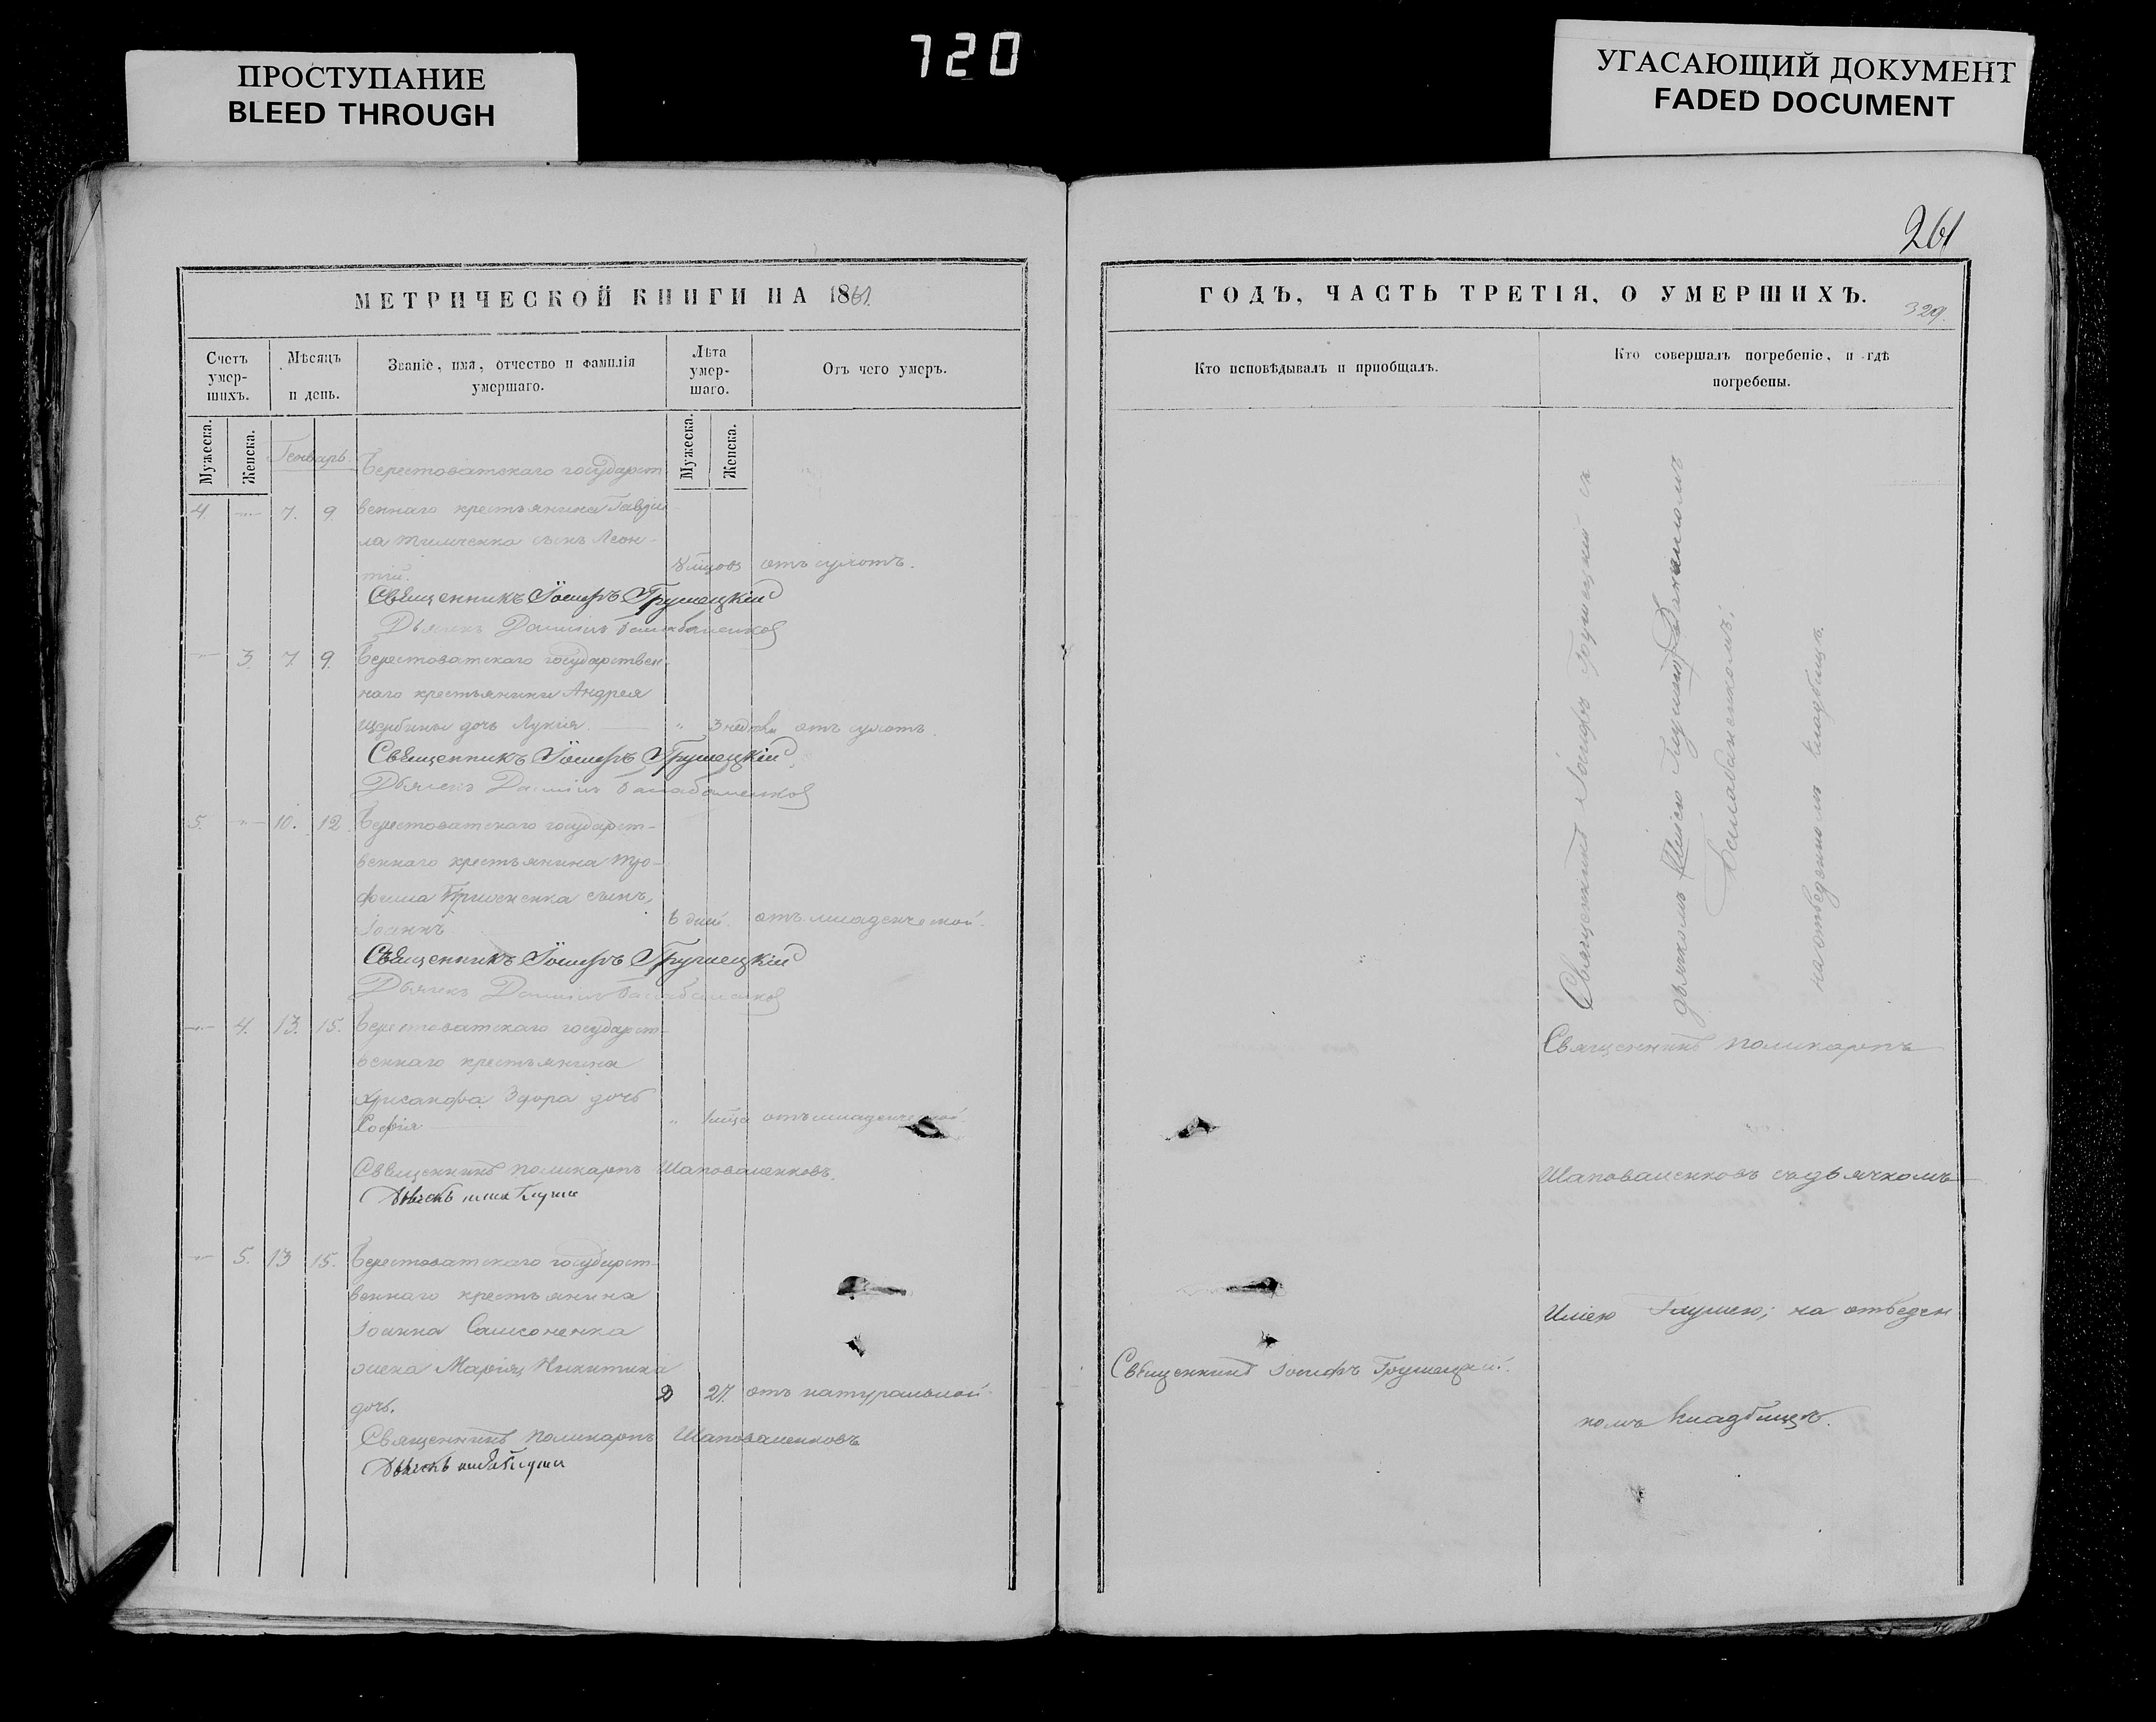 720
ПРОСТУПАНИЕ
BLEED THROUGH
УГАСАЮЩИЙ ДОКУМЕНТ
FADED DOCUMENT
МЕТРИЧЕСКОЙ КНИГИ НА 1861.
Счетъ умер-шихъ.
Мѣсяцъ и день.
Званіе, имя, отчество и фамилія умершаго.
Лѣта умер-шаго.
Отъ чего умеръ.
Мужеска.
Женска.
Мужеска.
Женска.
Генварь
Берестоватскаго государст
4. 7. 9. веннаго крестьянина Гаврі
ла сынъ Леон-
тій. отъ сухотъ.
Священникъ Іосифъ Грушецкій
Дьячекъ Даніилъ Балабаненковъ
3. 7. 9. Берестоватскаго государствен
наго крестьянина Андрея
Щербины дочь Лукія. 3 недѣли отъ сухотъ.
Священникъ Іосифъ Грушецкій
Дьячекъ Даніилъ Балабаненковъ
5. 10. 12. Берестоватскаго государст-
веннаго крестьянина Тро-
фима сынъ
Іоаннъ 6 дней. отъ младенческой.
Священникъ Іосифъ Грушецкій
Дьячекъ Даніилъ Балабаненковъ
4. 13. 15. Берестоватскаго государст-
веннаго крестьянина
Хрисанфа дочь
Софія отъ младенческой.
Священникъ Поликарпъ Шаповаленковъ.
Дьячекъ
5. 13 15. Берестоватскаго государст-
веннаго крестьянина
Іоанна Самсоненка
жена Марія Никитина
дочь. 27. отъ натуральной.
Священникъ Поликарпъ Шаповаленковъ
Дьячекъ
261
ГОДЪ, ЧАСТЬ ТРЕТІЯ, О УМЕРШИХЪ.
329.
Кто исповѣдывалъ и пріобщалъ.
Кто совершалъ погребеніе, и гдѣ погребены.
Священникъ Іосифъ Грушецкій съ
дьячкомъ Даніиломъ
Балабаненкомъ;
на отведенномъ кладбищѣ.
Священникъ Поликарпъ
Шаповаленковъ съ дьячкомъ
Иліею Глушею; на отведен
Священникъ Іосифъ Грушецкій.
номъ кладбищѣ.